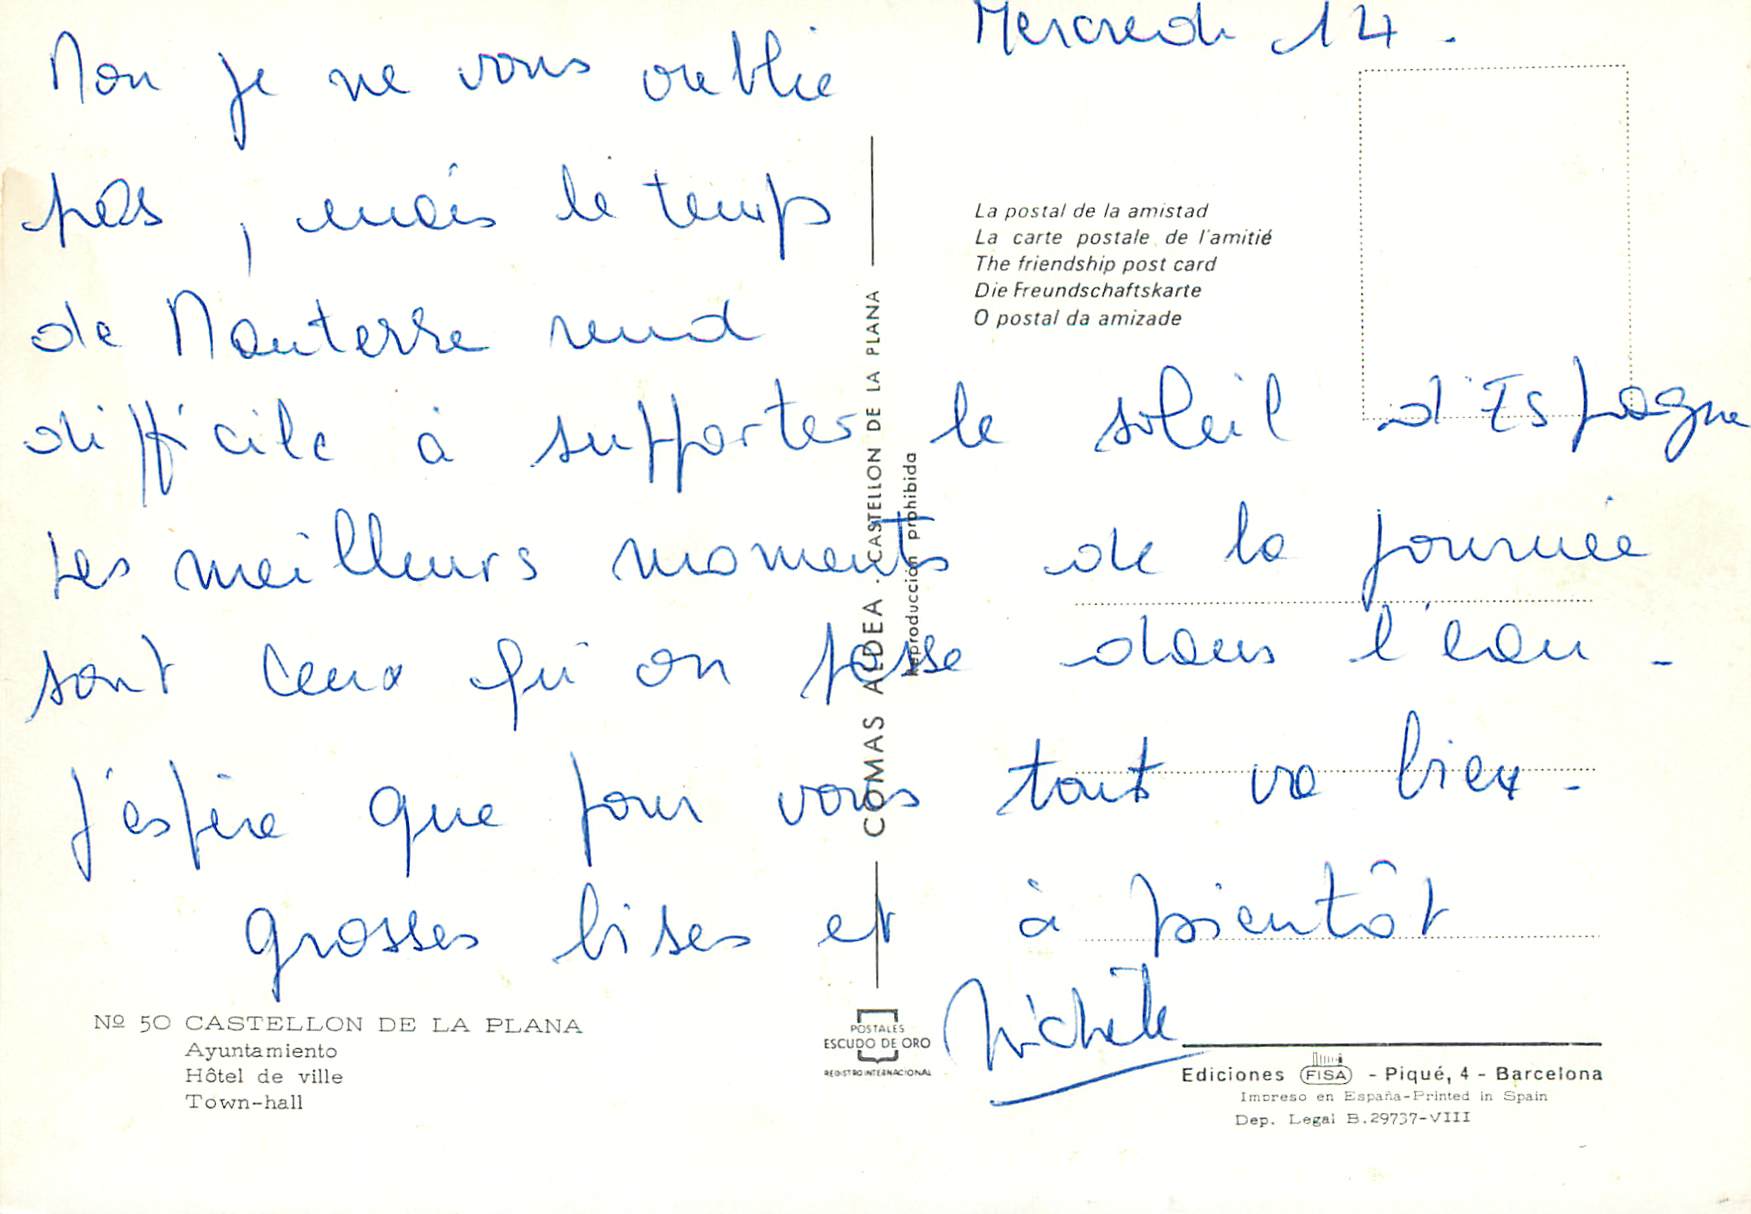 Mercredi 14.
Non je ne vous oublie
pas, mais le temps
de Nanterre rend
difficile à supporter le soleil d'Espagne
Les meilleurs moments de la journée
sont ceux qu'on passe dans l'eau -
J'espère que pour vous tout va bien -
grosses bises et à bientôt
Michèle
La postal de la amistad
La carte postale de l'amitié
The friendship post card
Die Freundschaftskarte
O postal da amizade
COMAS ALDEA · CASTELLON DE LA PLANA
Reproducción prohibida
Nº 50 CASTELLON DE LA PLANA
Ayuntamiento
Hôtel de ville
Town-hall
POSTALES
ESCUDO DE ORO
REGISTRO INTERNACIONAL
Ediciones FISA - Piqué, 4 - Barcelona
Impreso en España-Printed in Spain
Dep. Legal B.29737-VIII